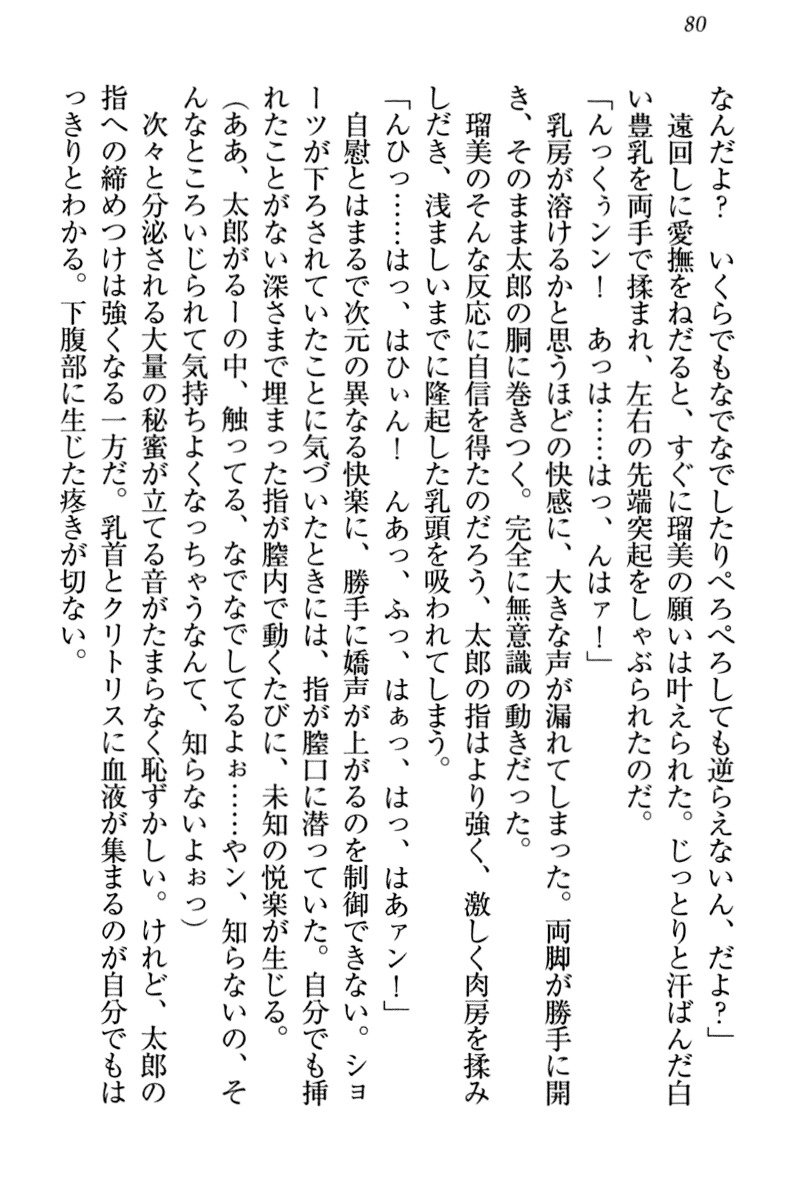 80
なんだよ？　いくらでもなでなでしたりぺろぺろしても逆らえないん、だよ？」
　遠回しに愛撫をねだると、すぐに瑠美の願いは叶えられた。じっとりと汗ばんだ白
い豊乳を両手で揉まれ、左右の先端突起をしゃぶられたのだ。
「んっくぅンン！　あっは……はっ、んはァ！」
　乳房が溶けるかと思うほどの快感に、大きな声が漏れてしまった。両脚が勝手に開
き、そのまま太郎の胴に巻きつく。完全に無意識の動きだった。
　瑠美のそんな反応に自信を得たのだろう、太郎の指はより強く、激しく肉房を揉み
しだき、浅ましいまでに隆起した乳頭を吸われてしまう。
「んひっ……はっ、はひぃん！　んあっ、ふっ、はぁっ、はっ、はあァン！」
　自慰とはまるで次元の異なる快楽に、勝手に嬌声が上がるのを制御できない。ショ
ーツが下ろされていたことに気づいたときには、指が膣口に潜っていた。自分でも挿
れたことがない深さまで埋まった指が膣内で動くたびに、未知の悦楽が生じる。
（ああ、太郎がるーの中、触ってる、なでなでしてるよぉ……やン、知らないの、そ
んなところいじられて気持ちよくなっちゃうなんて、知らないよぉっ）
　次々と分泌される大量の秘蜜が立てる音がたまらなく恥ずかしい。けれど、太郎の
指への締めつけは強くなる一方だ。乳首とクリトリスに血液が集まるのが自分でもは
っきりとわかる。下腹部に生じた疼きが切ない。